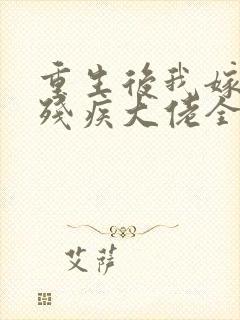 重生後我嫁
殘疾大佬全
艾薩